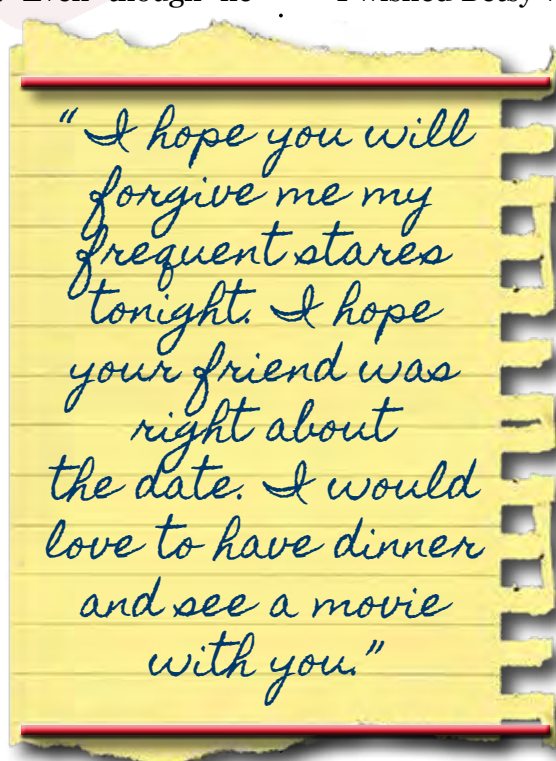 Even though he I wished Betsy
"I hope you will
forgive me my
frequent stares
tonight. I hope
your friend was
right about
the date. I would
love to have dinner
and see a movie
with you."